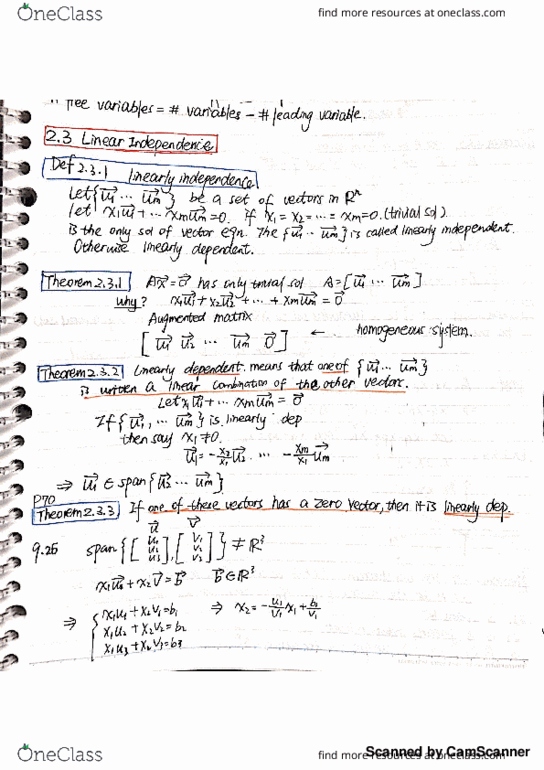 OneClass
find more resources at oneclass.com
free variables = # variables - # leading variable.
2.3 Linear Independence
Def 2.3.1 linearly independence
Let {u₁⃗ ... uₘ⃗} be a set of vectors in Rⁿ
let x₁u₁⃗ + ... xₘuₘ⃗ = 0. if x₁ = x₂ = ... = xₘ = 0. (trivial sol)
is the only sol of vector eqn. The {u₁⃗ ... uₘ⃗} is called linearly independent.
Otherwise linearly dependent.
Theorem 2.3.1 Ax⃗ = 0⃗ has only trivial sol A = [u₁⃗ ... uₘ⃗]
why? x₁u₁⃗ + x₂u₂⃗ + ... + xₘuₘ⃗ = 0⃗
Augmented matrix
[u₁⃗ u₂⃗ ... uₘ⃗ 0⃗] ← homogeneous system.
Theorem 2.3.2 Linearly dependent means that one of {u₁⃗ ... uₘ⃗}
is written a linear combination of the other vectors.
Let x₁u₁⃗ + ... xₘuₘ⃗ = 0⃗
If {u₁⃗, ... uₘ⃗} is linearly dep
then say x₁ ≠ 0.
u₁⃗ = -x₂/x₁ u₂⃗ ... -xₘ/x₁ uₘ⃗
⇒ u₁⃗ ∈ span{u₂⃗ ... uₘ⃗}
P70
Theorem 2.3.3 If one of these vectors has a zero vector, then it is linearly dep.
u⃗ v⃗
9.25 span{[u₁ u₂ u₃], [v₁ v₂ v₃]} ≠ R³
x₁u⃗ + x₂v⃗ = b⃗ b⃗ ∈ R³
⇒ { x₁u₁ + x₂v₁ = b₁ ⇒ x₂ = -u₁/v₁ x₁ + b₁/v₁
x₁u₂ + x₂v₂ = b₂
x₁u₃ + x₂v₃ = b₃
OneClass
find more resources at oneclass.com
Scanned by CamScanner